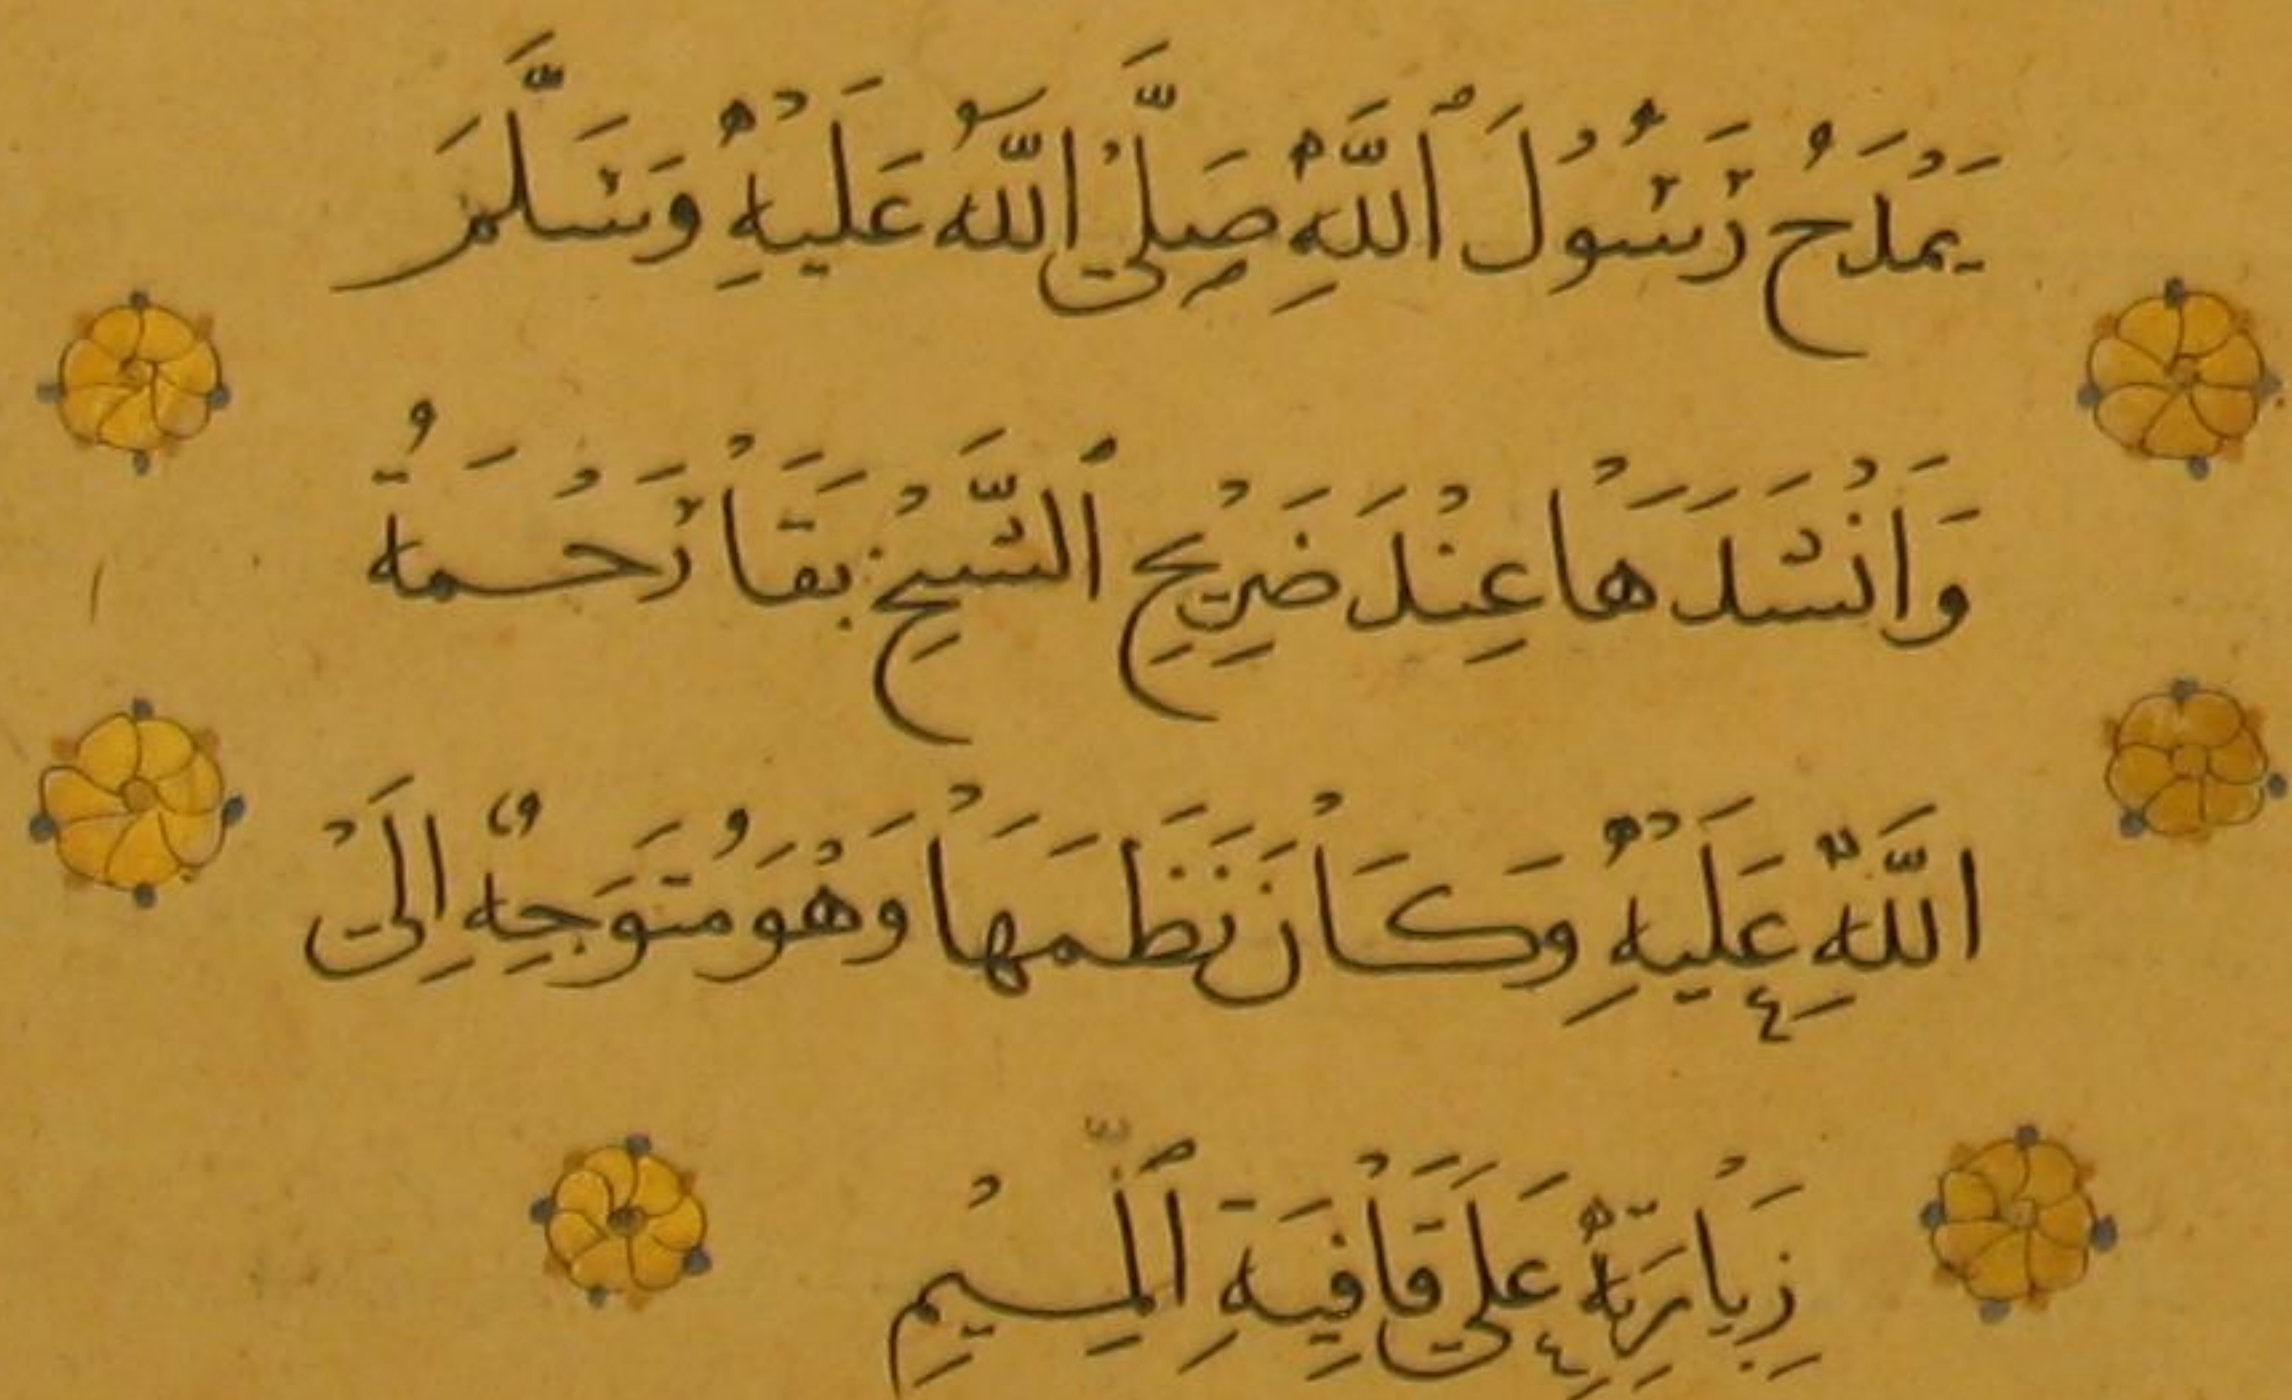 يَمْدَحُ رَسُولَ ٱللَّهِ صَلَّىْ اللَّهُ عَلَيْهِ وَسَلَّمَ
وَاَنْشَدَهَاْ عِنْدَ ضَرِيْحِ ٱلشَّيْخِ بَقَاْ رَحْمَةُ
اللَّهِ عَلَيْهِ وَكَاْنَ نَظَمَهَاْ وَهْوَ مُتَوَجِهٌ اِلَىْ
زِيَاْرَتِهِ عَلَىْ قَاْفِيَةِ ٱلْمِيْمِ